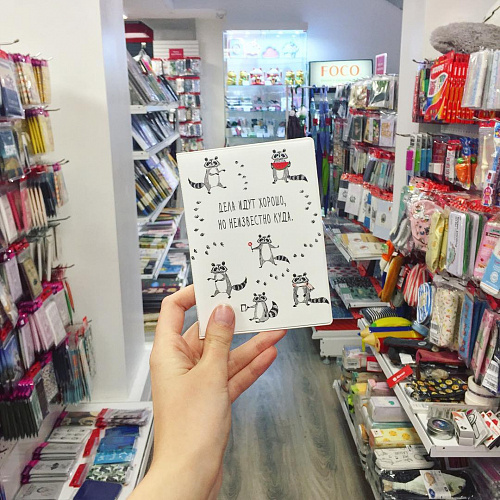 FOCO
ДЕЛА ИДУТ ХОРОШО,
НО НЕИЗВЕСТНО КУДА.